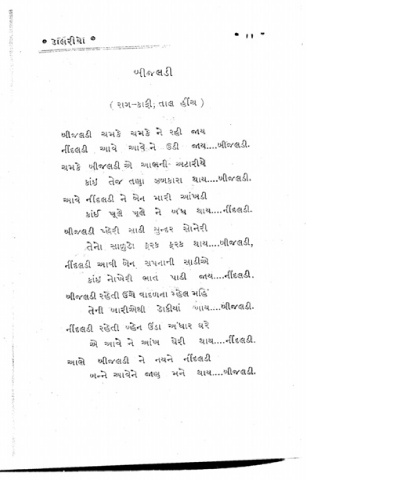 • ડાલરીયો •
• ૧૧ •
બીજલડી
( રાગ-કાફી, તાલ હીંચ )
બીજલડી ચમકે ચમકે ને રહી જાય
નીંદલડી આવે આવે ને ઉડી જાય....બીજલડી.
ચમકે બીજલડી એ આભની અટારીયે
કાંઇ તેજ તણા સબકારા થાય....બીજલડી.
આવે નીંદલડી ને બેન મારી આંખડી
કાંઈ ખૂલે ખૂલે ને બંધ થાય....નીંદલડી.
બીજલડી પ્હેરી સાડી સુન્દર સોનેરી
તેનો સાળુડો ફરક ફરક થાય....બીજલડી,
નીંદલડી આવી બેન સપનાની સાડીએ
કાંઇ નોખેરી ભાત પાડી જાય....નીંદલડી.
બીજલડી રહેતી ઉંચે વાદળના મ્હેલ મહિં
તેની બારીએથી ડોકીયાં ખાય....બીજલડી.
નીંદલડી રહેતી બ્હેન ઉંડા અંધાર ઘરે
એ આવે ને આંખ ઘેરી થાય....નીંદલડી.
આભે બીજલડી ને નયને નીંદલડી
બન્ને આવેને જાણ મને થાય....બીજલડી.